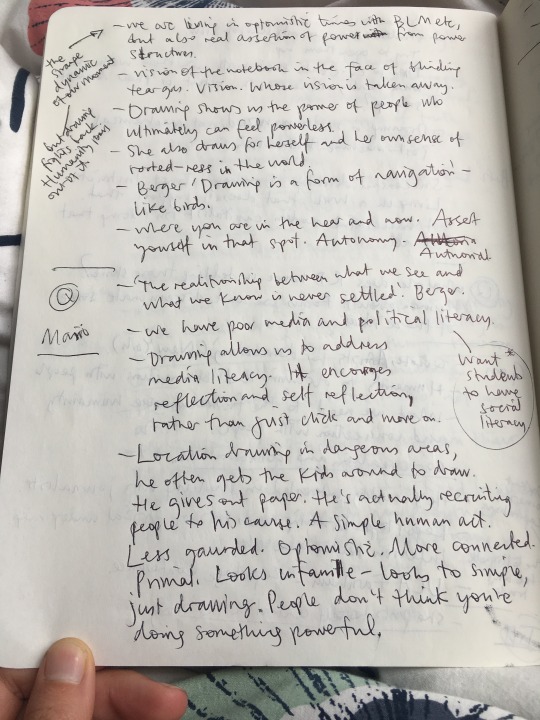 - we are living in optomistic times with BLM etc,
but also real assertion of power from power
structures.
the
strange
dynamic
of our moment
- vision of the notebook in the face of blinding
tear gas. Vision. Whose vision is taken away.
- Drawing shows us the power of people who
ultimately can feel powerless.
but drawing
fights back
Humanity
out of it.
- She also draws for herself and her own sense of
rooted-ness in the world.
- Berger 'Drawing is a form of navigation' -
like birds.
- where you are in the hear and now. Assert
yourself in that spot. Autonomy.
Q
- 'The realtionship between what we see and
what we know is never settled'. Berger.
Mario
- we have poor media and political literacy.
- Drawing allows us to address
media literacy. It encorages
reflection and self reflection,
rather than just click and move on.
want *
students
to have
social
literacy
- Location drawing in dangeous areas,
he often gets the kids around to draw.
He gives out paper. He's actually recruiting
people to his cause. A simple human act.
Less gaurded. Optomistic. More connected.
Primal. Looks infantle - looks to simple,
just drawing. People don't think you're
doing something powerful.